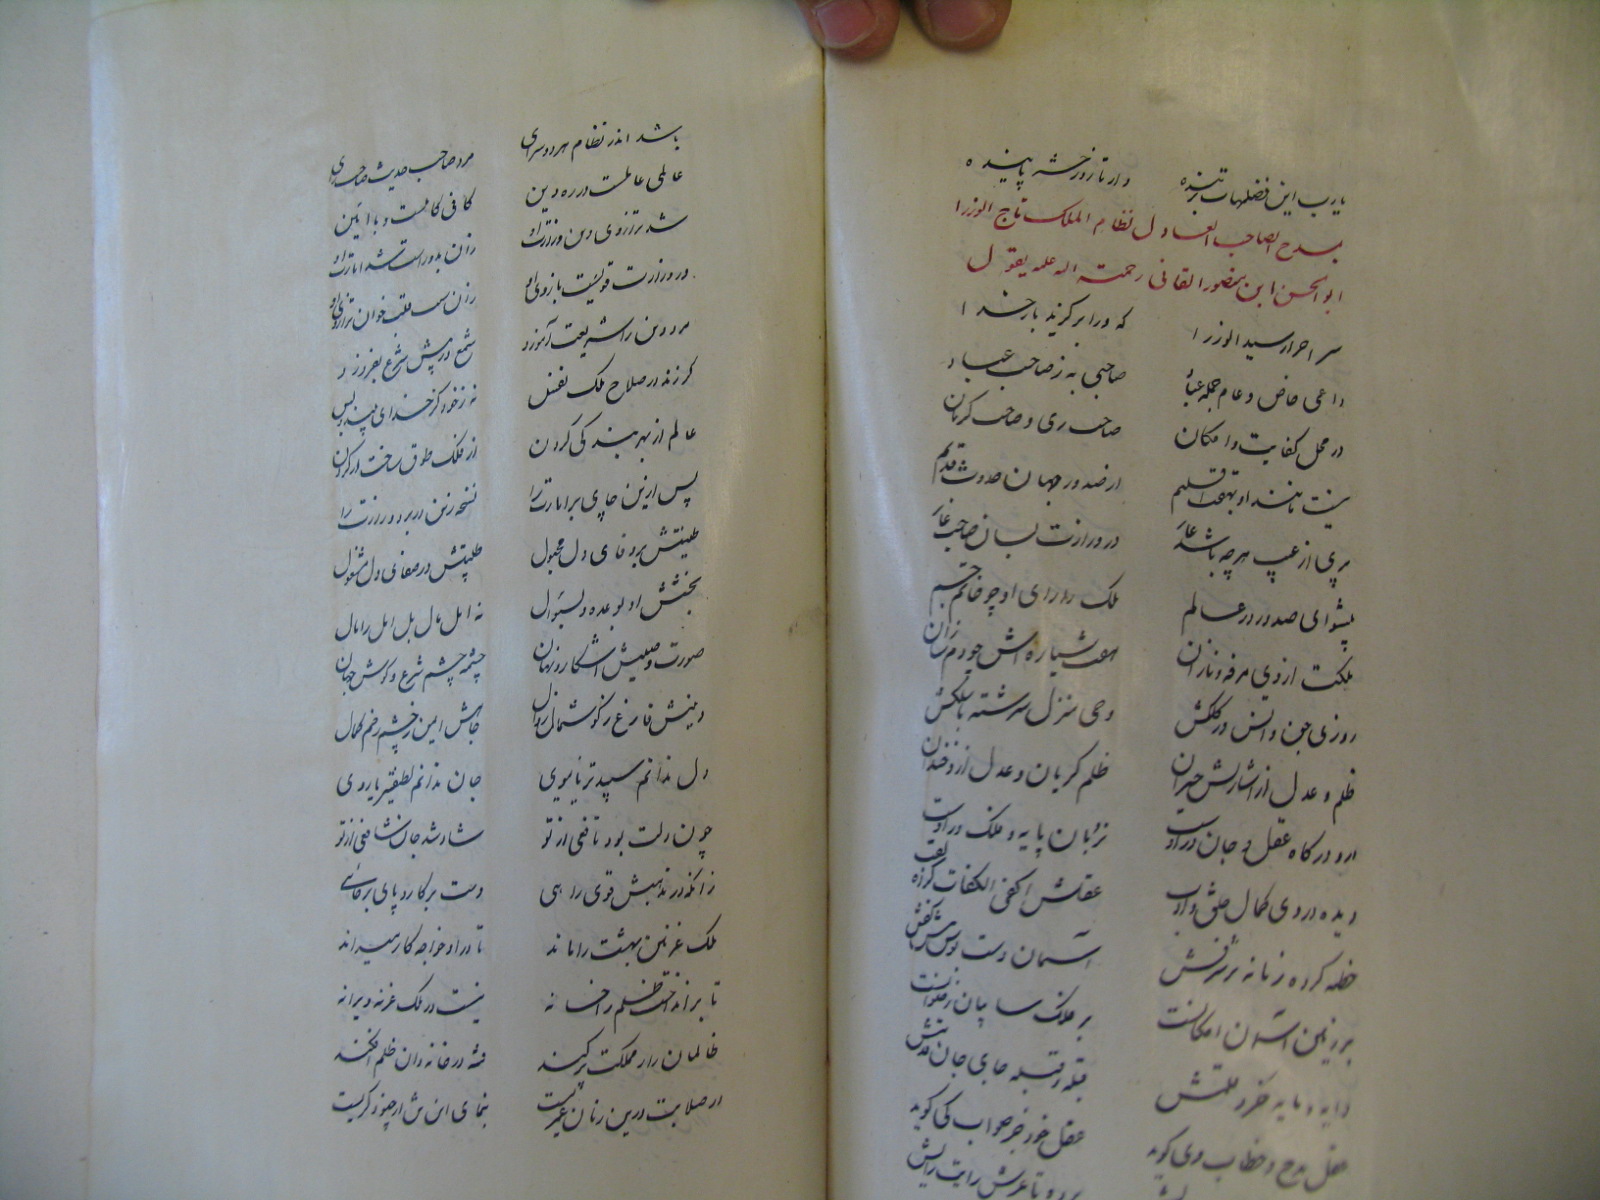 یارب این فضلهاات برتنده دار تا روز حشر پاینده
بمدح الصاحب العادل نظام الملک تاج الوزرا
ابو الحسن ابن منصور القاینی رحمته اله علیه یقول
سر احرار سید الوزرا که ورا برکزید بار خدا
داعی خاص و عام جمله عباد صاحبی به ز صاحب عباد
در محل کفایت و امکان صاحب ری و صاحب کرمان
نیست مانند او بهفت اقلیم از صدور جهان حدوث قدیم
بری از عیب هر چه باشد عار در وزارت بسان صاحب غار
پیشوای صدور در عالم ملک را رای او چو خاتم جم
ملکت از وی مرفه و نازان
روزی جن و انس در کلکش وحی منزل سرشته با کلکش
ظلم و عدل از اشارتش حیران ظلم کریان و عدل ازو خندان
ازو درکاه عقل و جان در اوست نردبان پایه و فلک در اوست
دیده در وی کمال خلق و ادب عقلش اکفی الکفات کرده لقب
خطبه کرده زمانه بر شرفش آسمان دست بوس
بر زمین آسمان امکانست بر فلک سایبان
دایه و مایه خرد قبله جای جان
عقل مدح و خطاب وی کوید عقل خود جز صواب کی کوید
باشد اندر نظام هر دو سرای مرد صاحب حدیث صاحب رای
عالمی عاملست در ره دین کافی کافیست و با آئین
شد ترازوی دین وزارت او زان بدو راست شد امارت او
در وزارت قویست بازوی او زان سعادت خوان ترازوی او
مرد دین را شریعت آموزد شمع در پیش شرع بفروزد
کر زند در صلاح ملک نفس نه ز خود کز خدای بیند و بس
عالم از بهر بند کی کردن از فلک طوق ساخت در کردن
پس ازین جای بر امارت را نسخه زین در برد وزارت را
طینتش بر وفای دل مجبول طلبتش در صفای دل مشغول
بخشش او بوعده و بسؤال نه امل مال بل امل را مال
صورت و صیتش آشکار و نهان چشمه چشم شرع و کوش جهان
دینش فارغ ز کوشمال زوال جاهش ایمن ز چشم زخم کمال
دل ندانم سپیدتر یا موی جان ندانم لطیفتر یا روی
چون دلت بود نافعی از تو شاد شد جان شافعی از تو
زانکه در مذهبش قوی راهی دست بر کار و پای بر جائی
ملک غزنین بهشت را ماند تا درو خواجه کار میراند
تا برانداخت ظلم را خانه نیست در ملک غزنه ویرانه
ظالمان را ز مملکت برکند فتنه در خانه دان ظلم افکند
از صلابت درین زمان عمریست بنمای این نشان ز خود کریست